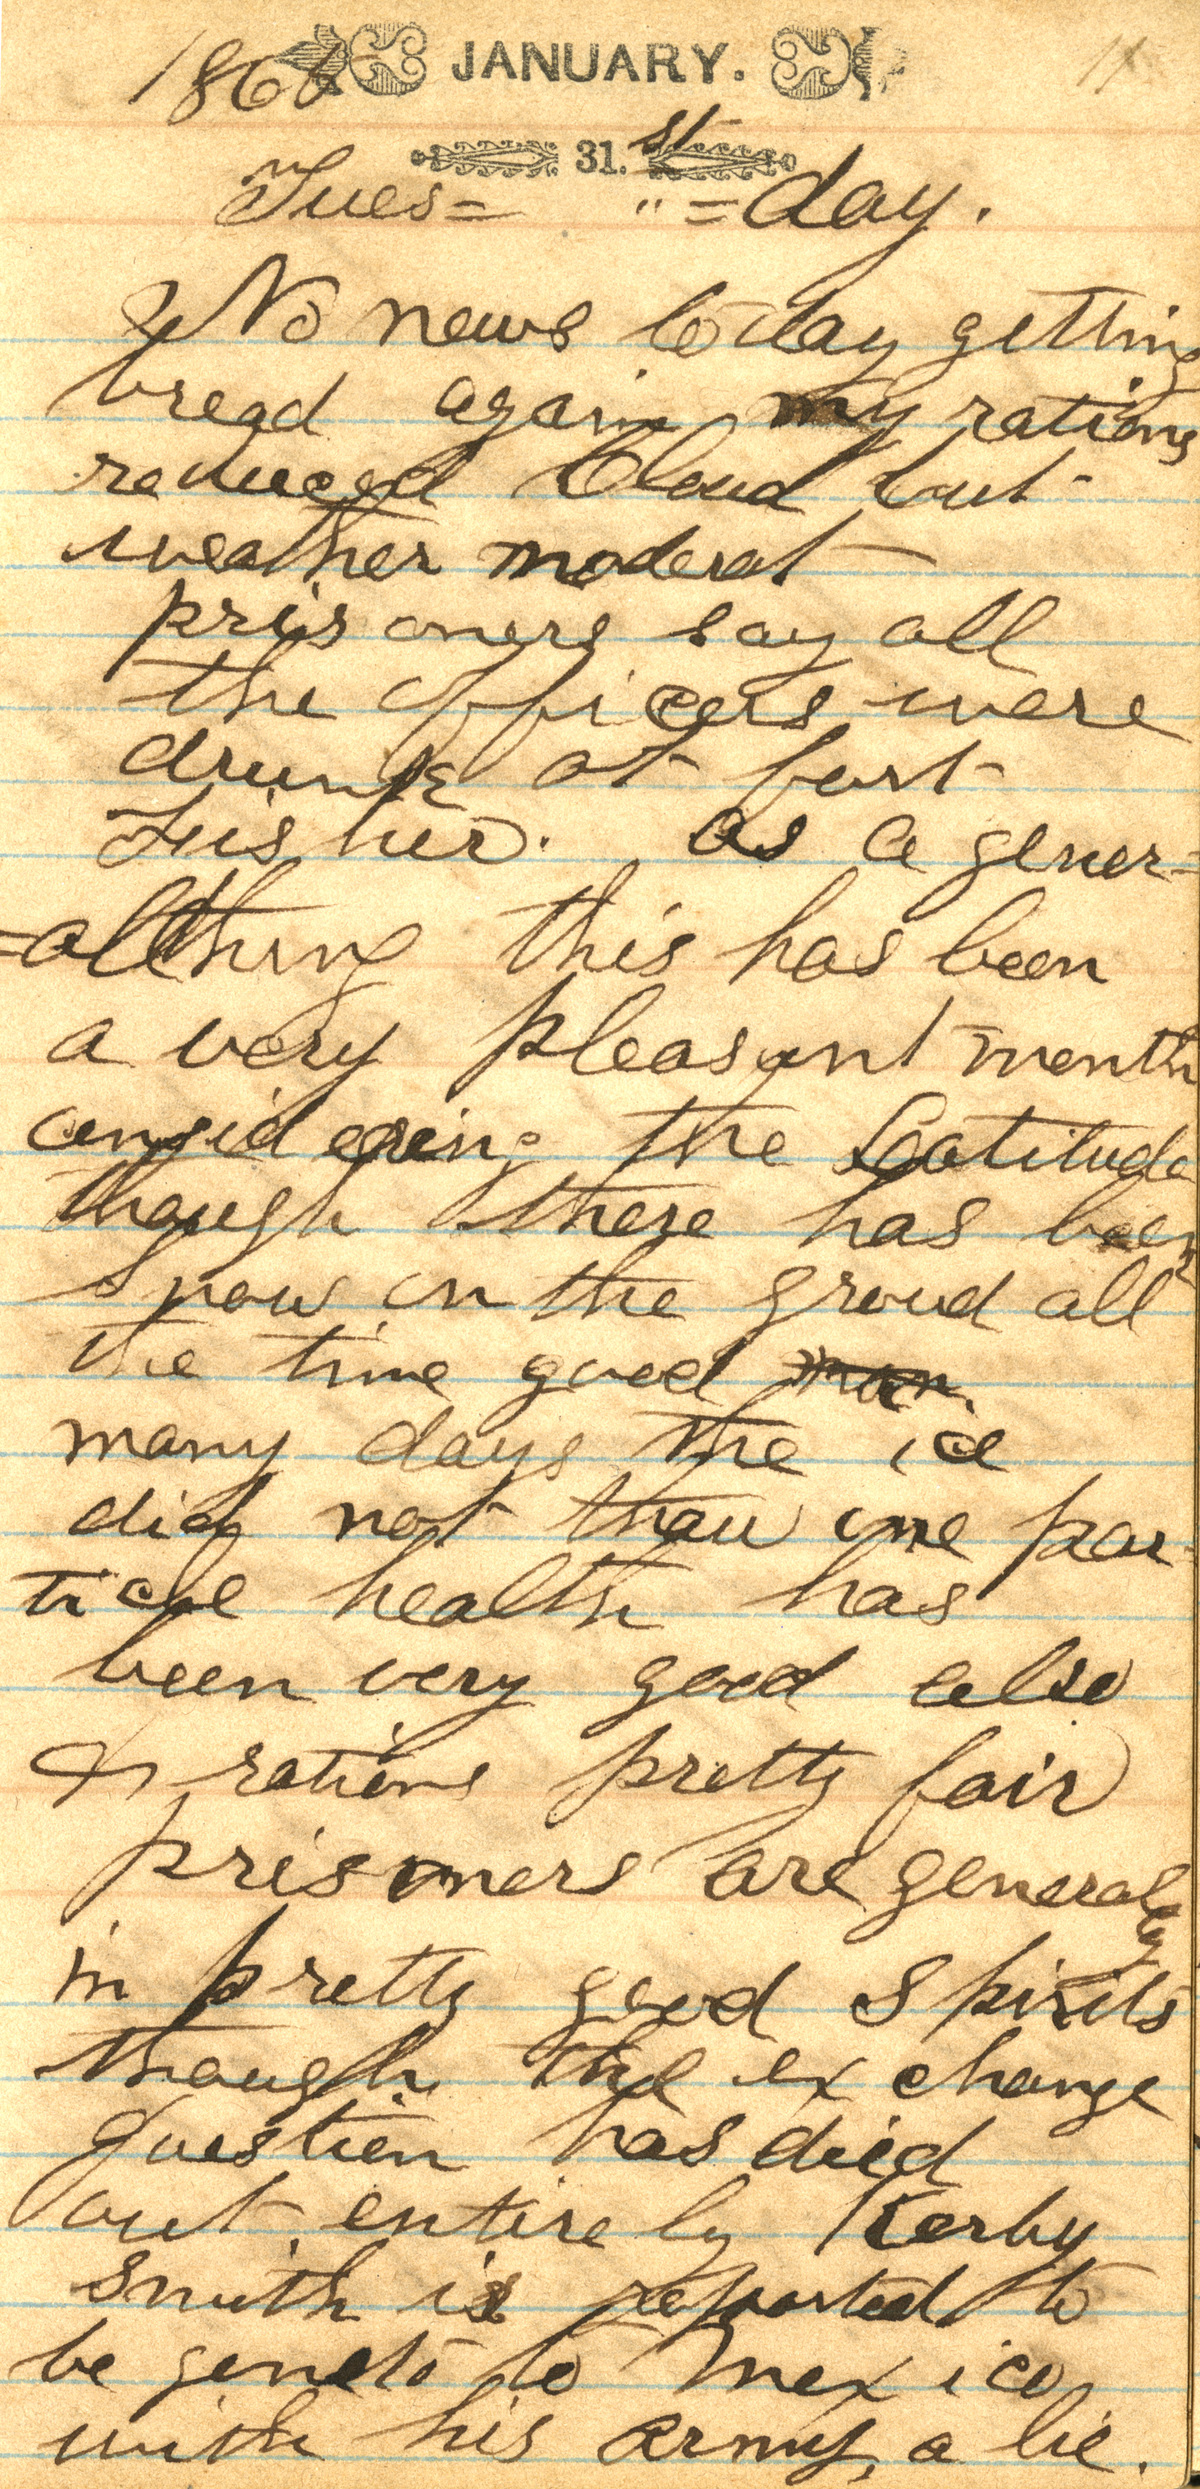 1865 JANUARY. 11
31.st
Tues= " =day.
No news today getting
bread again my rations
reduced Cloud but
weather moderat
prisoners say all
the officers were
drunk at fort
Fisher. as a gener=
=althing this has been
a very pleasant month
considering the Latitude
though there has been
snow on the groud all
the time good man
many days the ice
did not thaw one par
ticle health has
been very good also
& rations pretty fair
prisoners are generaly
in pretty good spirits
though the exchange
question has died
out entirely Kerby
Smith is reported to
be gone to Mexico
with his army, a lie.